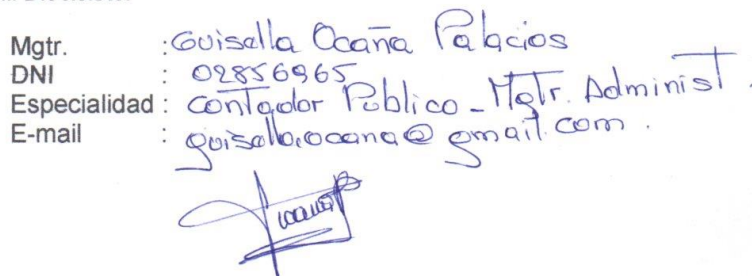 Mgtr. : Guisella Ocaña Palacios
DNI : 02856965
Especialidad : Contador Público - Mgtr. Administ.
E-mail : guisella.ocana@gmail.com.